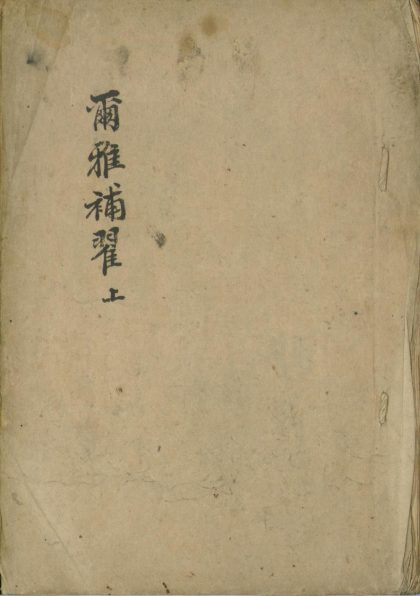 爾雅補翟上